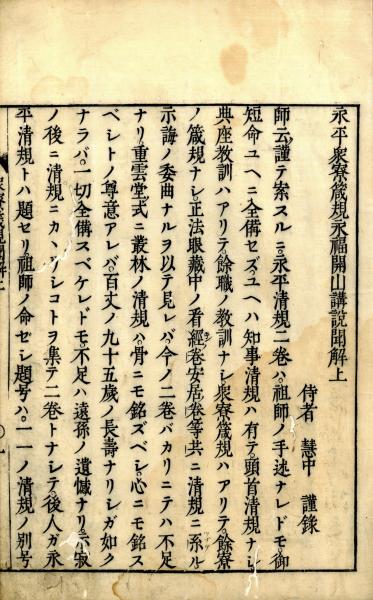 永平衆寮箴規永福開山講説聞解上
侍者 慧中 謹錄
師云謹テ案スルニ永平清規二卷ハ祖師ノ手述ナレドモ御
短命ユヘニ全備セズユヘハ知事清規ハ有テ頭首清規ナシ
典座教訓ハアリテ餘職ノ教訓ナシ衆寮箴規ハアリテ餘寮
ノ箴規ナシ正法眼藏中ノ看經卷安居卷等共ニ清規ニ系ル
示誨ノ委曲ナルヲ以テ見レバ今ノ二卷バカリニテハ不足
ナリ重雲堂式ニ叢林ノ清規ハ骨ニモ銘ズベシ心ニモ銘ス
ベシトノ尊意アレバ百丈ノ九十五歲ノ長壽ナリシガ如ク
ナラバ一切全備スベケレドモ不足ハ遠孫ノ遺憾ナリ示寂
ノ後ニ清規ニカヽリシコトヲ集テ二卷トナシテ後人ガ永
平清規トハ題セリ祖師ノ命ゼシ題号ハ一一ノ清規ノ別号